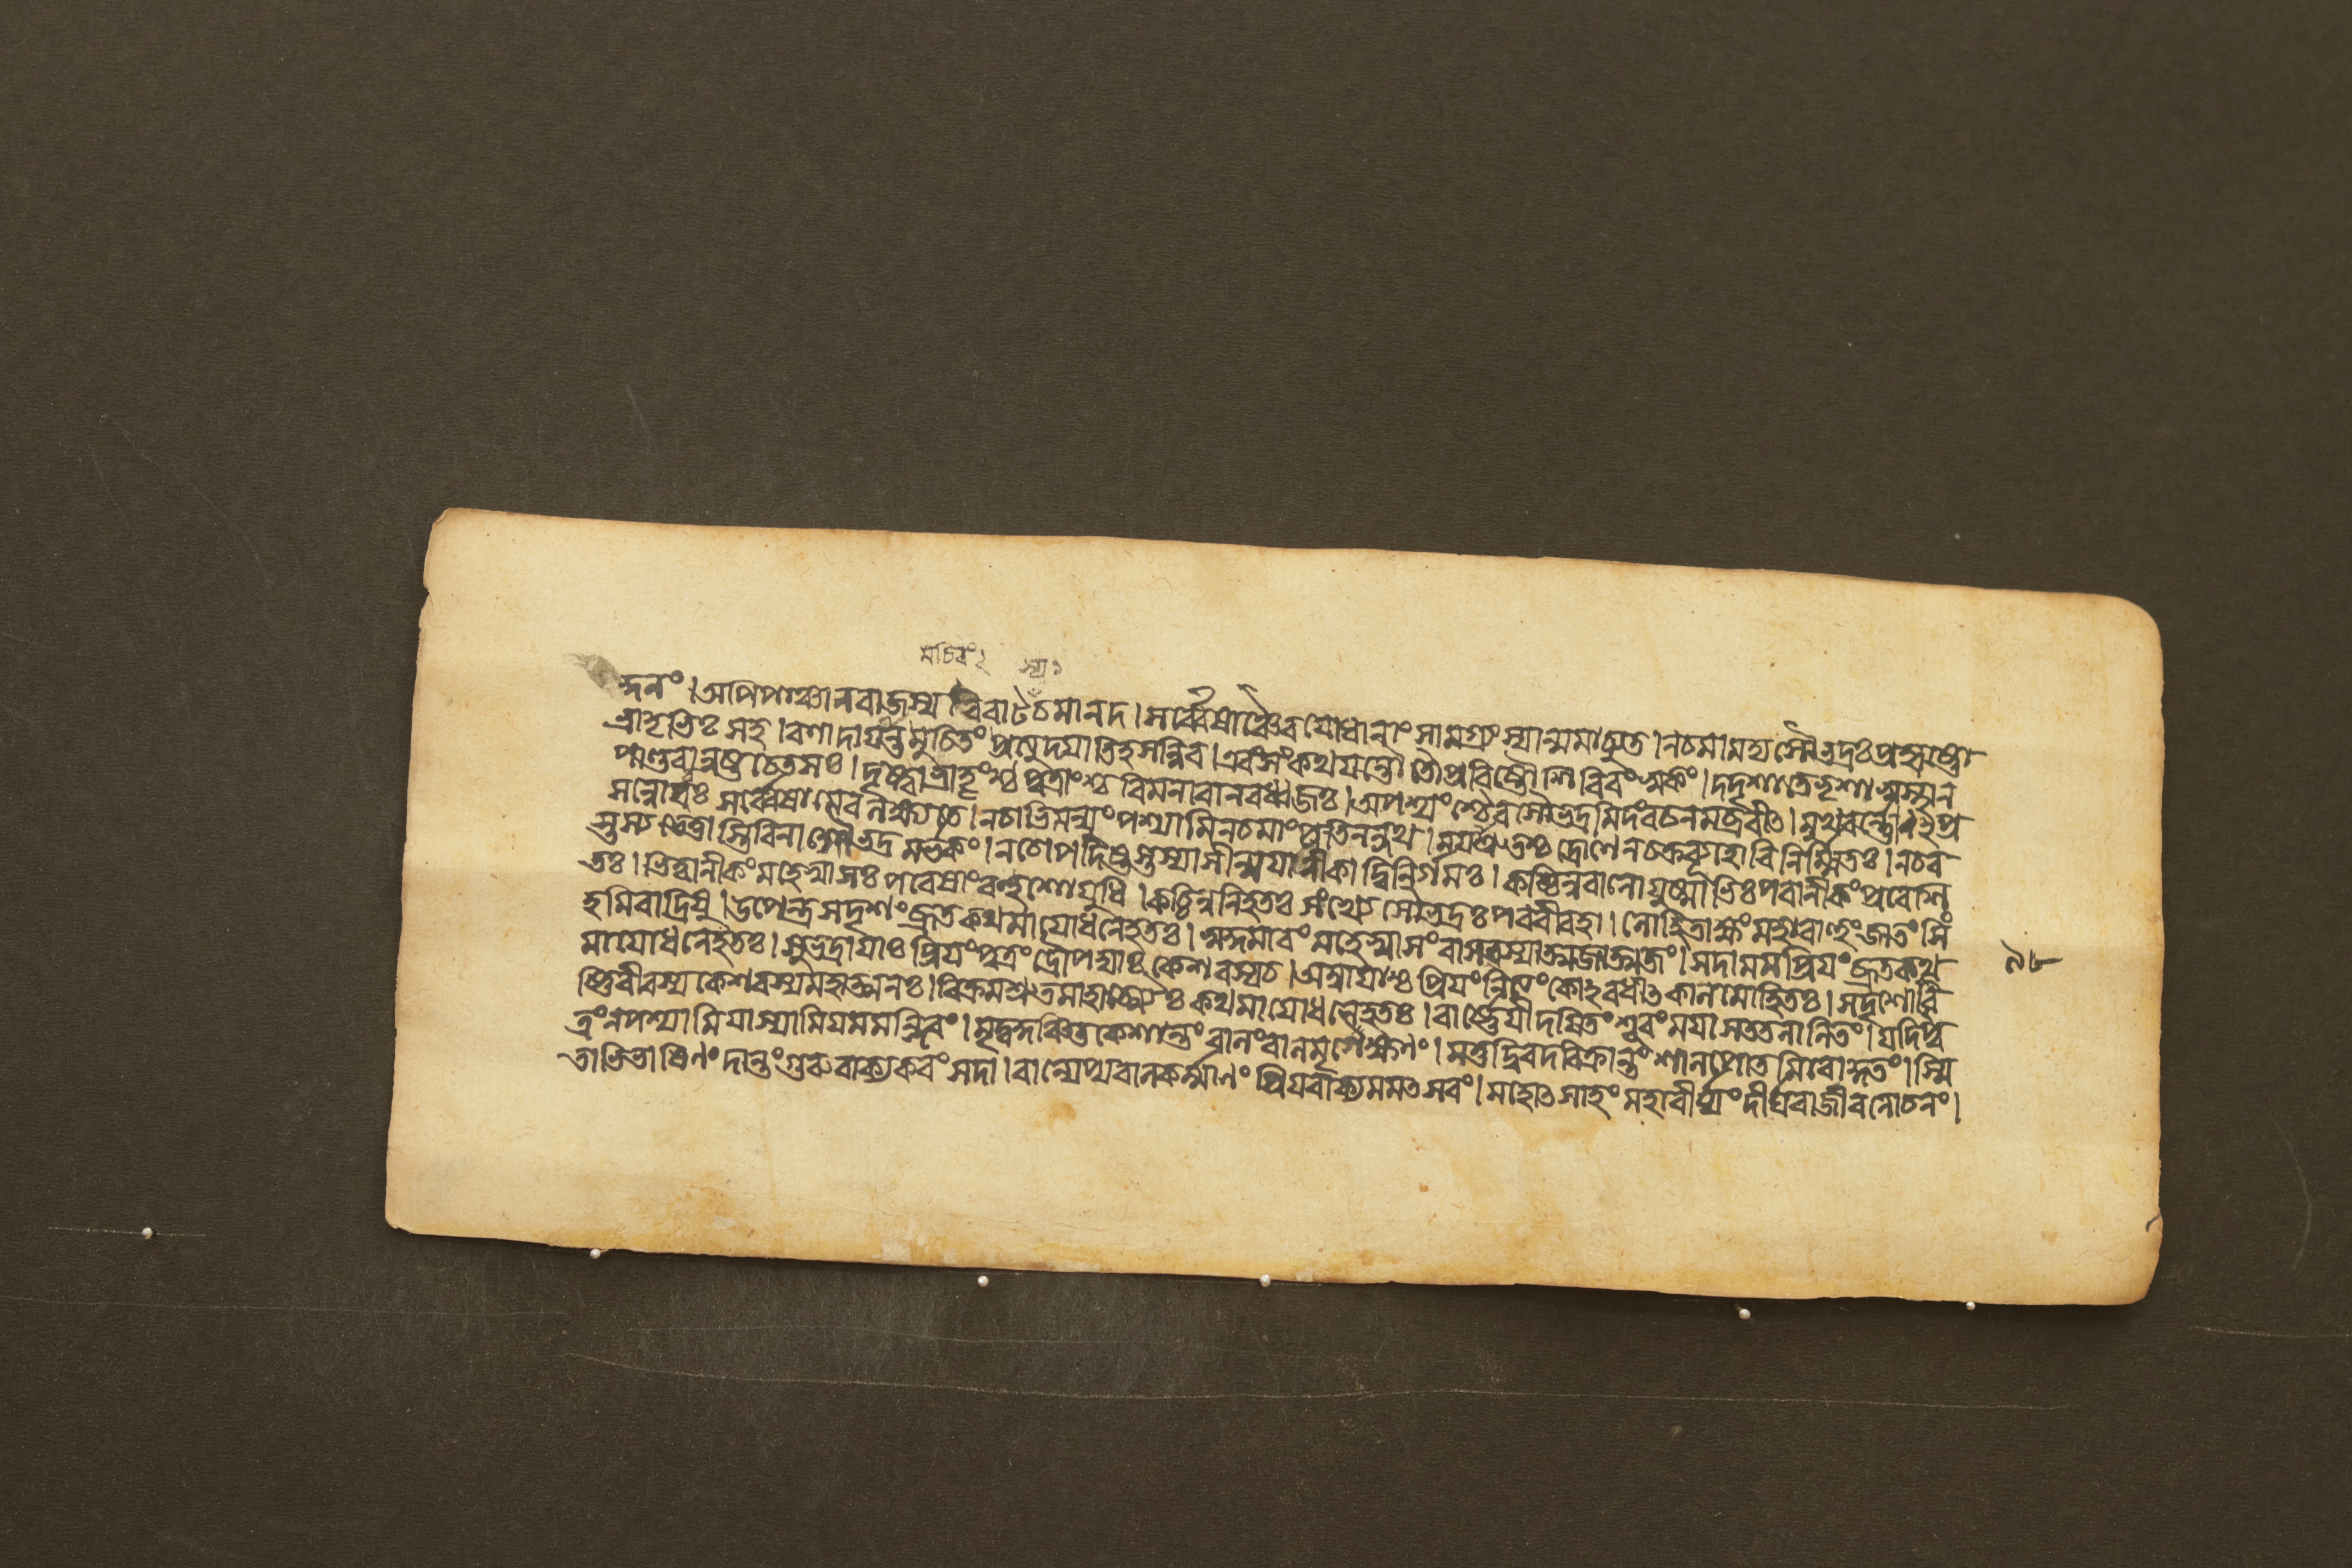 ন্দনং।অপিপাঞ্চালরাজস্য বিরাটচমানদ।সর্ব্বেষাঞ্চৈবযোধানাং সামগ্র্যং স্যান্মমাচ্যুত।নচমামদ্যসৌভদ্রঃপ্রহৃষ্টো
ভ্রাতৃভিঃ সহ।রণাদাযান্তমুচিতং প্রত্যুদযাতিহসন্নিব।এবংসংকথযন্তৌ তৌপ্রবিষ্টৌ শিবিরং স্বকং।দদৃশাতেভৃশাস্বস্থান
পাণ্ডবান্নষ্টচেতসঃ।দৃষ্ট্বাভ্রাতৃংশ্চ পুত্রাংশ্চ বিমনাবানরধ্বজঃ।অপশ্যংশ্চৈবসৌভদ্রমিদংবচনমব্রবীৎ।মুখবর্ন্নোঽপ্র
সন্নোবঃ সর্ব্বেষামেবলক্ষ্যতে।নচাভিমন্যুংপশ্যামিনচমাংপ্রতিনন্দথ।মযাশ্রুতশ্চ দ্রোণেনচক্রব্যূহোবিনির্ম্মিতঃ।নচব
স্তস্যভেত্তাস্তিবিনাসৌভদ্রমর্ভকং।নচোপদিষ্টস্তস্যাসীন্মযানীকাদ্বিনির্গমঃ।কচ্চিন্নবালোযুষ্মাভিঃপরানীকংপ্রবেশি
তঃ।ভিত্ত্বানীকংমহেষ্বাসঃপরেষাংবহুশোযুধি।কচ্চিন্ননিহতঃ সংখ্যে সৌভদ্রঃপরবীরহা।লোহিতাক্ষংমহাবাহুংজাতং সিং
হমিবাদ্রিষু।উপেন্দ্রসদৃশংব্রূতকথমাযোধনেহতঃ। মহেষ্বাসংবাসবস্যাত্মজাত্মজং।সদামমপ্রিযংব্রূতকথ
মাযোধনেহতঃ।সুভদ্রাযাঃপ্রিযংপুত্রংদ্রৌপদ্যাঃকেশবস্যচ।অম্বাযাশ্চপ্রিযংনিত্যংকোঽবধীৎকালমোহিতঃ।সদৃশোবৃ
ষ্ণিবীরস্যকেশবস্যমহাত্মনঃ।বিক্রমশ্রুতমাহাত্ম্যৈঃকথমাযোধনেহতঃ।বার্ষ্ণেযীদযিতংশূরংমযাসততলালিতং।যদিপু
ত্রংনপশ্যামিযাস্যামিযমমন্দিরং।মৃদুকুঞ্চিতকেশান্তংবালংবালমৃগেক্ষণং।মত্তদ্বিরদবিক্রান্তংশালপোতমিবোদ্গতং।স্মি
তাভিভাষিণংদান্তংগুরুবাক্যকরংসদা।বাল্যেপ্যবালকর্ম্মাণংপ্রিযবাক্যমমৎসরং।মহোৎসাহংমহাবীর্য্যংদীর্ঘরাজীবলোচনং।
৯৮